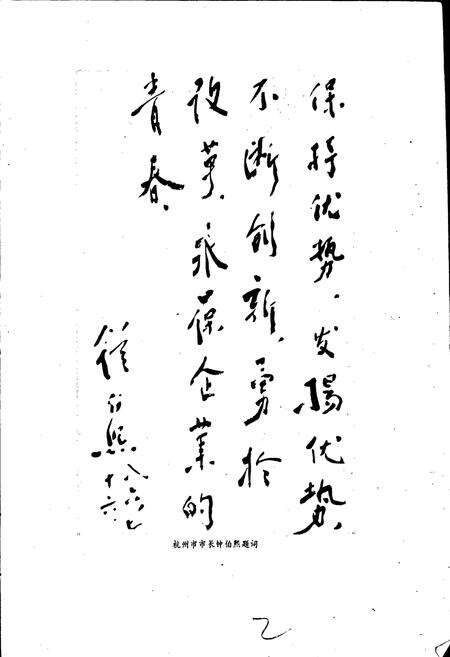 保持优势、发扬优势，
不断创新，勇于
改革，永葆企业的
青春。
钟伯熙
八六、七
十六
杭州市市长钟伯熙题词
乙